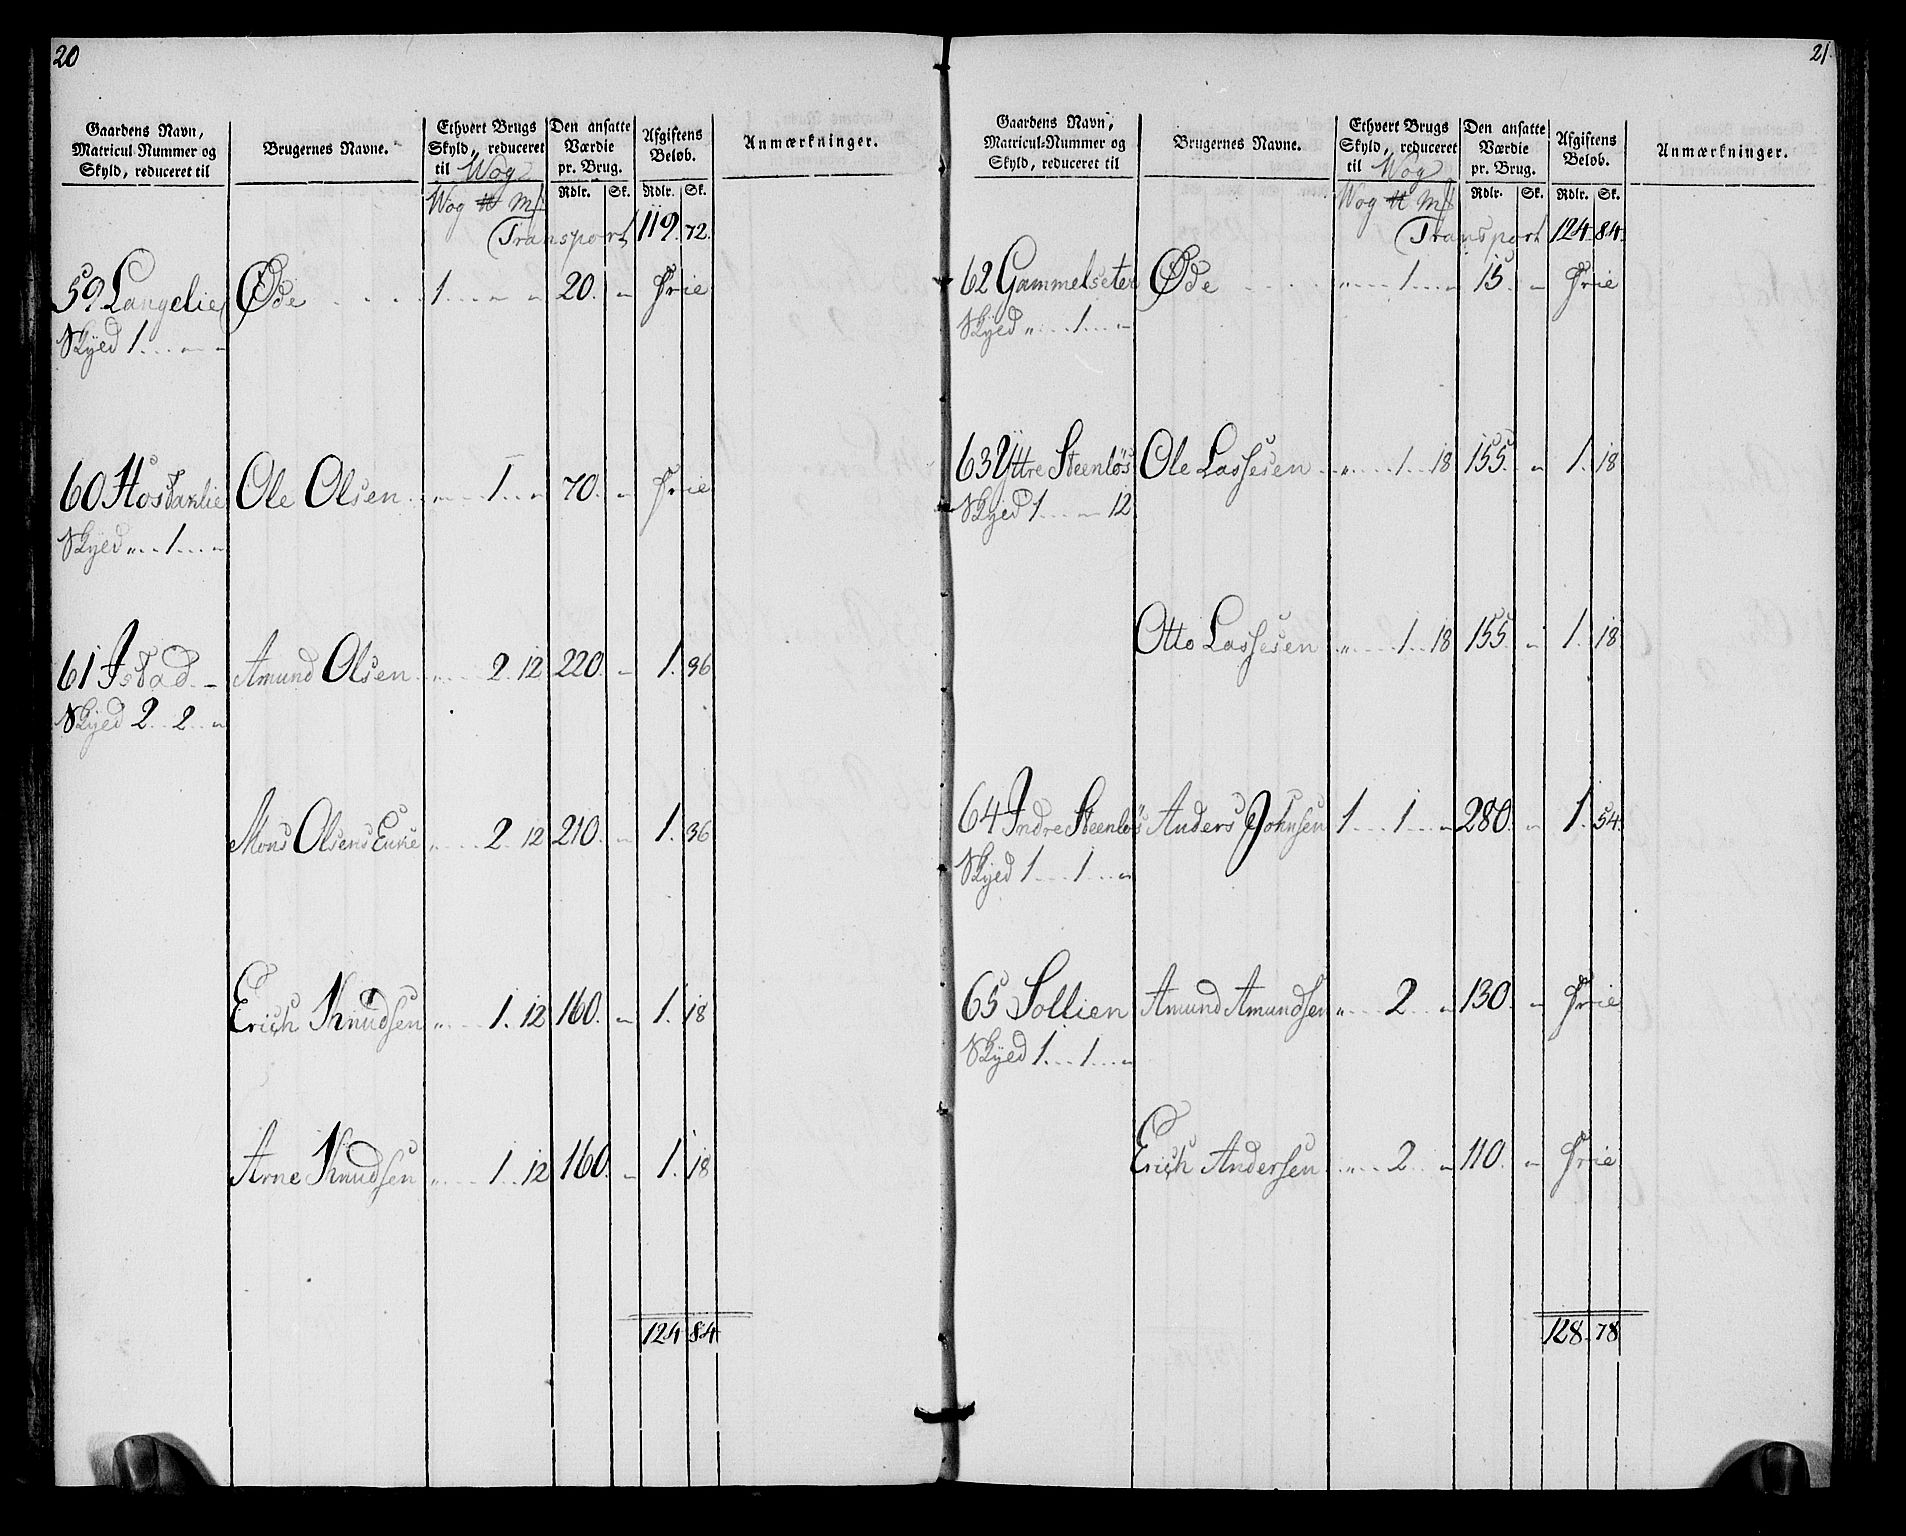 20
Gaardens Navn, Matricul-Nummer og Skyld, reduceret til
Brugernes Navne.
Ethvert Brugs Skyld, reduceret til Wog
Den ansatte Værdie pr. Brug.
Afgiftens Beløb.
Anmærkninger.
Wog ℔ Mk Rdlr. Sk. Rdlr. Sk.
Transport 119. 72.
59 Langelie Øde 1 „ „ 20. „ Frie
Skyld 1 „ „
60 Hostanlie Ole Olsen „ 1 „ 70. „ Frie
Skyld „ 1 „
61 Istad Amund Olsen „ 2. 12 220. „ 1. 36
Skyld 2 2 „
Mons Olsens Enke „ 2. 12 210. „ 1. 36
Erich Knudsen „ 1. 12 160. „ 1. 18
Arne Knudsen „ 1. 12 160. „ 1. 18
124 84
21.
Gaardens Navn, Matricul-Nummer og Skyld, reduceret til
Brugernes Navne.
Ethvert Brugs Skyld, reduceret til Wog
Den ansatte Værdie pr. Brug.
Afgiftens Beløb.
Anmærkninger.
Wog ℔ Mk Rdlr. Sk. Rdlr. Sk.
Transport 124 84
62 Gammelseter Øde „ 1 „ 15. „ Frie
Skyld „ 1 „
63 Yttre Steenløs Ole Lassesen „ 1 18 155. „ 1. 18
Skyld 1 „ 12
Otto Lassesen „ 1 18 155. „ 1. 18
64 Indre Steenløs Anders Johnsen 1 1 „ 280. „ 1. 54
Skyld 1 1 „
65 Sollien Amund Amundsen „ 2 „ 130. „ Frie
Skyld 1 1 „
Erich Andersen „ 2 „ 110. „ Frie
128. 78